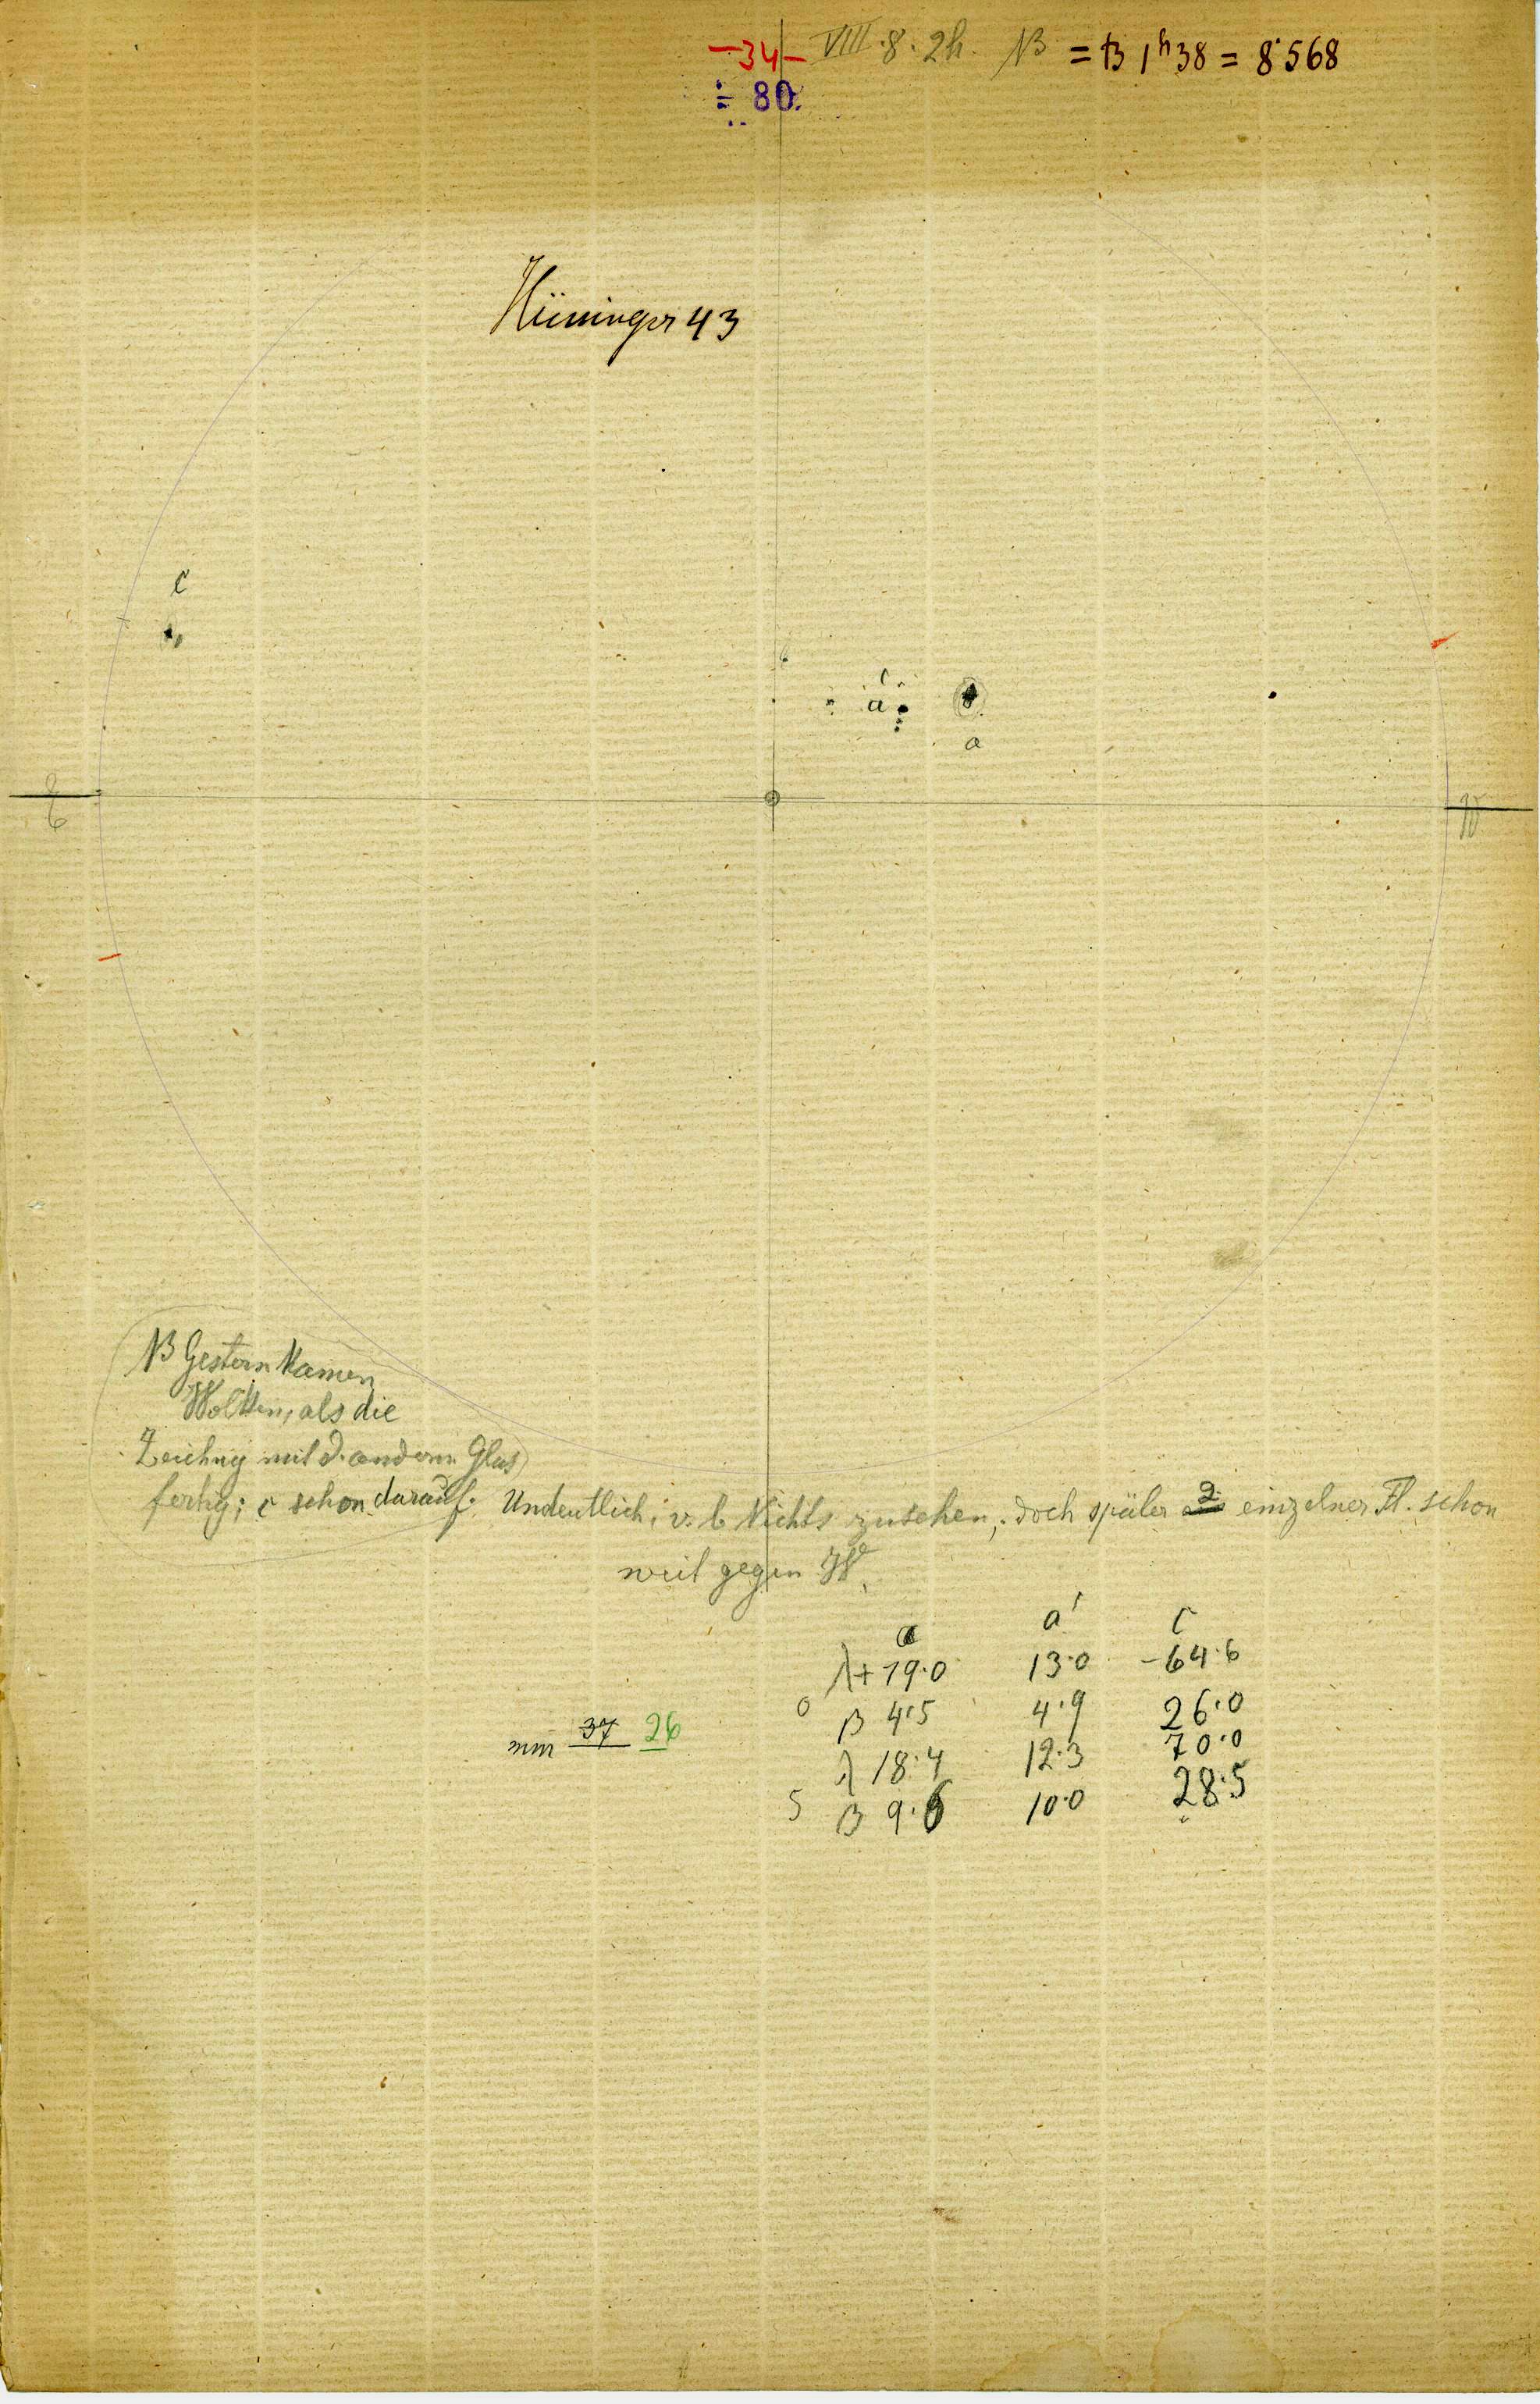 -34- VIII. 8. 2h. NB = B 1h38 = 8.568
÷ 80.
43
c
b
a'
a
E
W
NB Gestern kamen
Wolken, als die
Zeichng mit d. andern Glas
fertig; c schon darauf. Undeutlich; v. b Nichts zu sehen; doch später einzelner Fl. schon
weit gegen W.
a a' c
λ + 19.0 13.0 -64.6
0 β 4.5 4.9 26.0
mm 37 26
λ 18.4 12.3 70.0
5 β 9.6 10.0 28.5